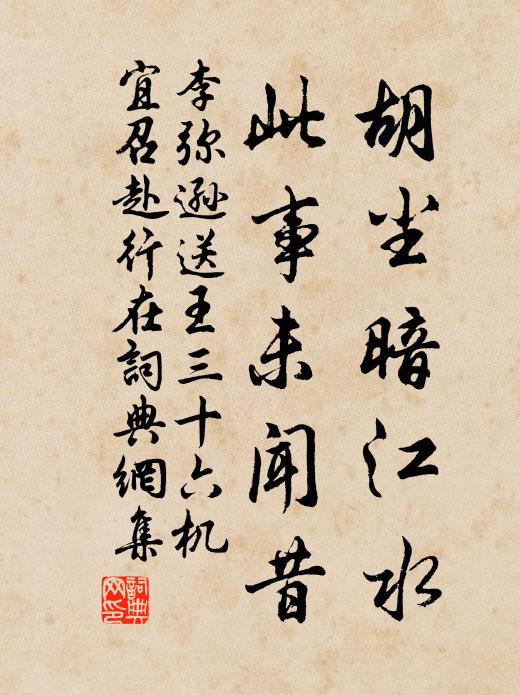 胡尘暗江水
此事未闻昔
李弥逊送王三十六机
宜召赴行在詞典網集
詞典
网印